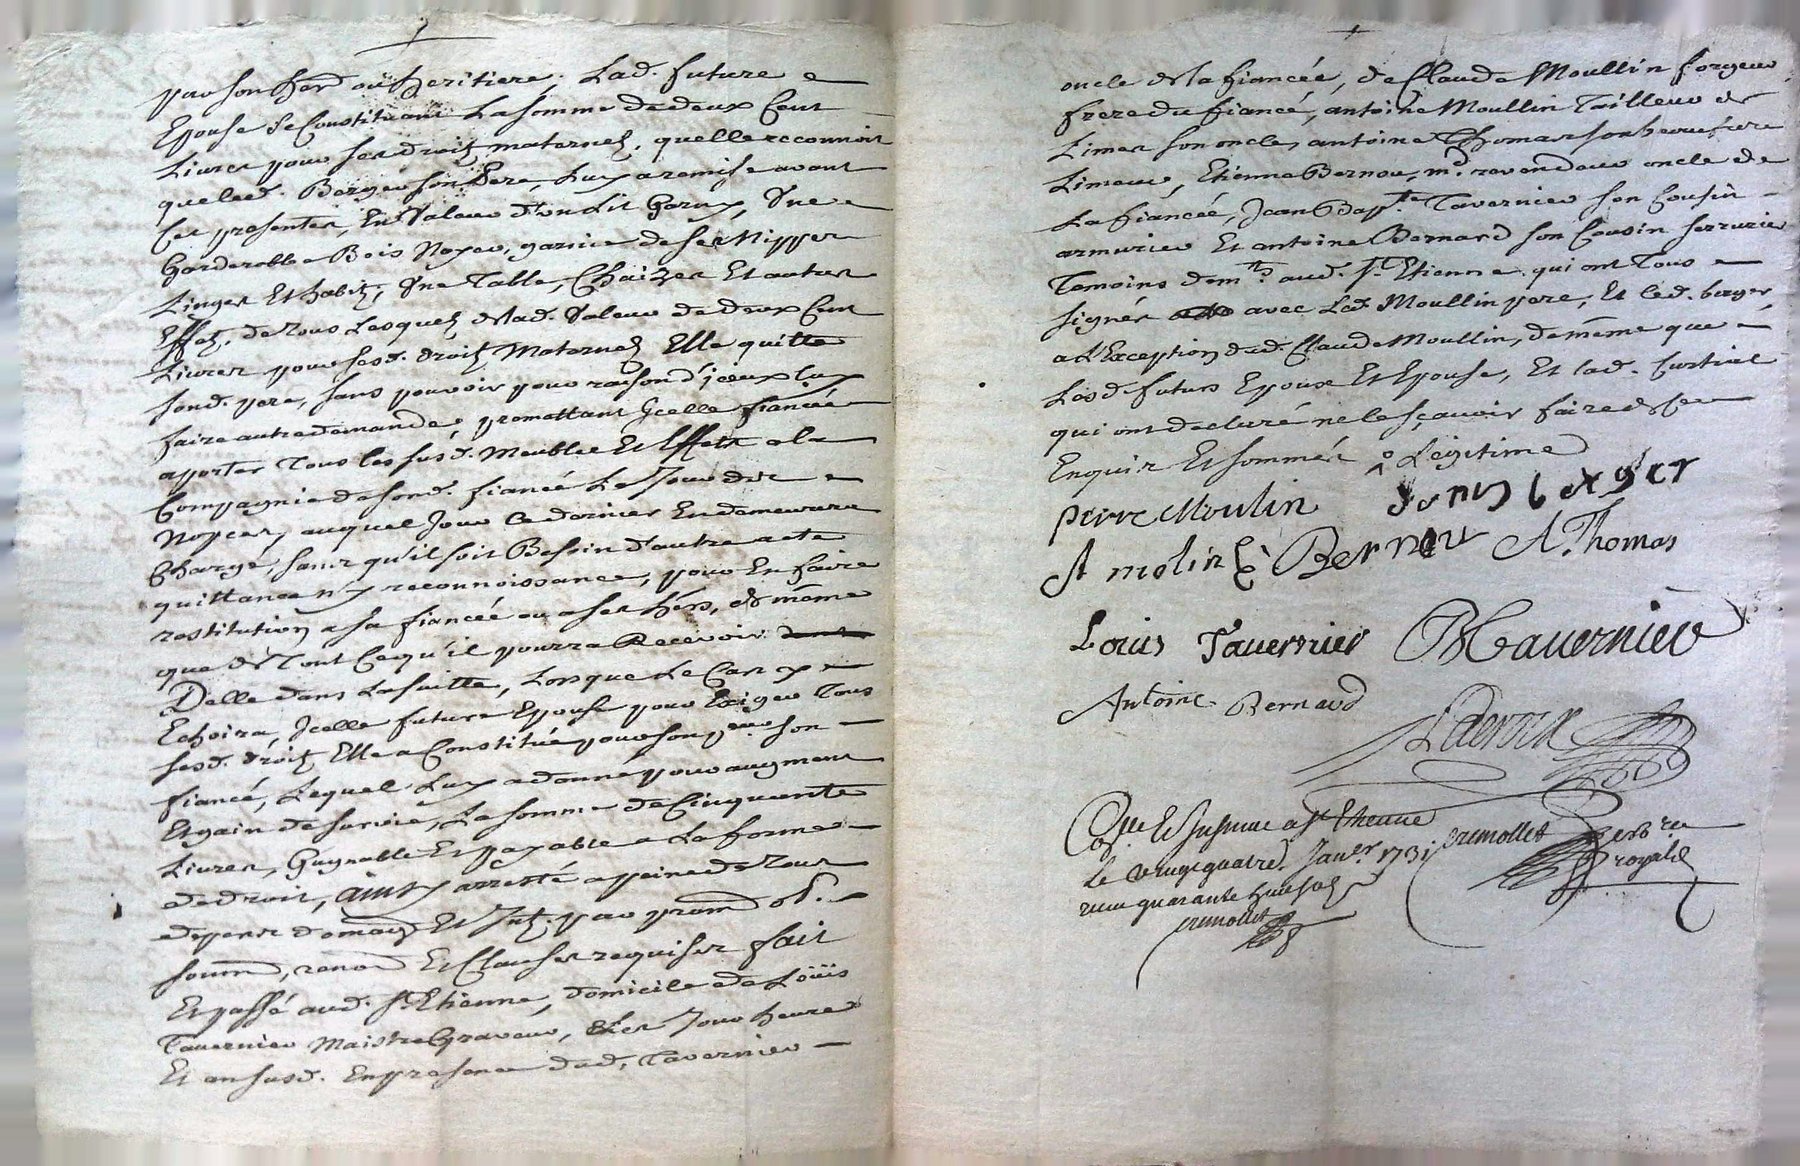 par son herd ou heritiere, Lad. future
Epouse se Constituant La somme de deux Cent
Livres pour ses droitz maternelz, quelle reconnoit
queled. Berger son Pere, Luy a remise avant
Ces presentes, En Valeur d'un Lit Garny, Une
Garderobbe Bois Noyer, garnie de ses Nippes
Linges Et habitz, Une Table, Chaizes Et autres
Effetz, de Tous Lesquelz de lad. Valeur de deux Cent
Livres pour sesd. droitz Maternelz Elle quitte
sond. pere, sans pouvoir pour raison d'iceux luy
faire autre demande, promettant Icelle fiancée
aporter Tous les susd. Meubles Et Effets a la
Compagnie de sond. fiancé Le Jour des
Nopces, auquel Jour ce dernier En demeurera
Chargé, sans qu'il soit Besoin d'autre acte
quittance ny reconnoissance, pour En faire
restitution a sa fiancée ou a ses hérs, de même
que de Tout Ce qu'il pourra Recevoir
Delle dans La suitte, Lorsque Le Cas y
Echoira, Icelle future Epouse pour Exiger Tous
sesd. droitz Elle a Constitué pour son preur son
fiancé, Lequel Luy a donné pour augment
Et gain de survie, La somme de Cinquante
Livres, Gagnable Et payable a La forme
de droit, ainsy arresté a peine de Tous
depens domag Et Intz. par prom ob.
soum, renon Et Clauses requises fait
Et passé aud. St. Etienne, domicile de Loüis
Tavernier Maistre Graveur, Les Jour heure
Et an susd. En presence dud. Tavernier
oncle de la fiancée, de Claude Moullin forgeur
frere du fiancé, antoine Moullin Tailleur de
Limes son oncle, antoine Thomas son beaufrere
Limeur, Etienne Bernou, md. revendeur oncle de
La fiancée, Jean Bapte. Tavernier son Cousin
armurier Et antoine Bernard son Cousin serrurier
Temoins demts. aud. St. Etienne qui ont Tous
signés avec Led. Moullin pere, Et led. berger
a L'Exception dud. Claude Moullin, de même que
Lesd. futurs Epoux Et Epouse, Et lad. Curtial
qui ont declaré ne le sçavoir faire de ce
Enquis Et sommés Légitime
pierre Moulin Denis berger
A molin E Bernou A. Thomas
Louis Tavernier JB Tavernier
Antoine Bernard
Delavoix
Colle Et Insinué a St Etienne
Le vingt quatre Janer. 1731
reçu quarante huit sols
cremollet
cremollet
royal